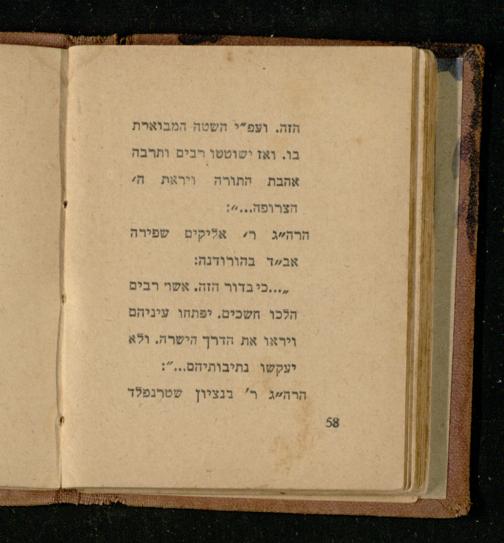 הזה. ועפ״י השטה המבוארת
בו. ואז ישוטטו רבים ותרבה
אהבת התורה ויראת ה׳
הצרופה...״:
הרה״ג ר׳ אליקים שפירה
אב״ד בהורודנה:
„...כי בדור הזה. אשר רבים
הלכו חשכים. יפתחו עיניהם
ויראו את הדרך הישרה. ולא
יעקשו נתיבותיהם...״:
הרה״ג ר׳ בנציון שטרנפלד
58